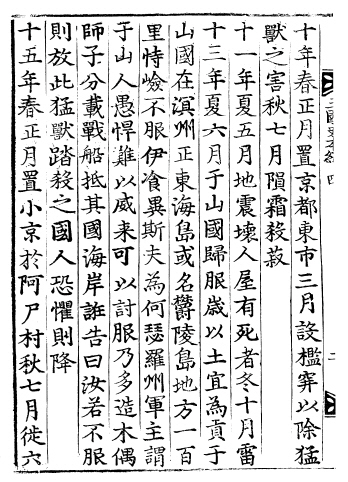 十年春正月置京都東市三月設檻穽以除猛
獸之害秋七月隕霜殺菽
十一年夏五月地震壞人屋有死者冬十月雷
十三年夏六月于山國歸服歲以土宜爲貢于
山國在溟州正東海島或名欝陵島地方一百
里恃嶮不服伊飡異斯夫爲何瑟羅州軍主謂
于山人愚悍難以威来可以討服乃多造木偶
師子分載戰船抵其國海岸誑告曰汝若不服
則放此猛獸踏殺之國人恐懼則降
十五年春正月置小京於阿尸村秋七月徙六